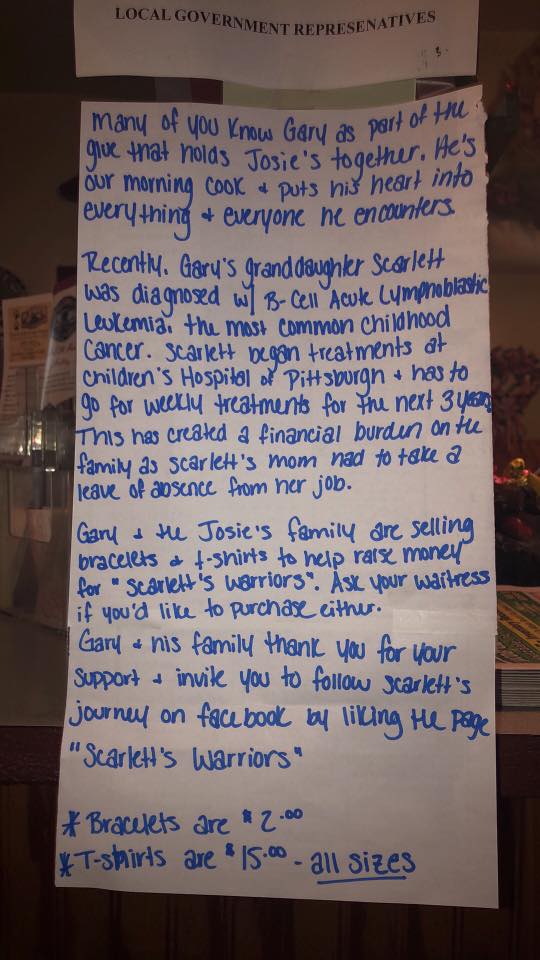 LOCAL GOVERNMENT REPRESENATIVES
many of you know Gary as part of the
glue that holds Josie's together. He's
our morning cook + puts his heart into
everything + everyone he encounters.
Recently, Gary's granddaughter Scarlett
was diagnosed w/ B-Cell Acute Lymphoblastic
Leukemia, the most common childhood
cancer. Scarlett began treatments at
children's Hospital of Pittsburgh + has to
go for weekly treatments for the next 3 years
This has created a financial burden on the
family as scarlett's mom had to take a
leave of absence from her job.
Gary + the Josie's family are selling
bracelets + t-shirts to help raise money
for "Scarlett's warriors". Ask your waitress
if you'd like to purchase either.
Gary + his family thank you for your
support + invite you to follow scarlett's
journey on facebook by liking the page
"Scarlett's Warriors"
* Bracelets are $2.00
* T-shirts are $15.00 - all sizes